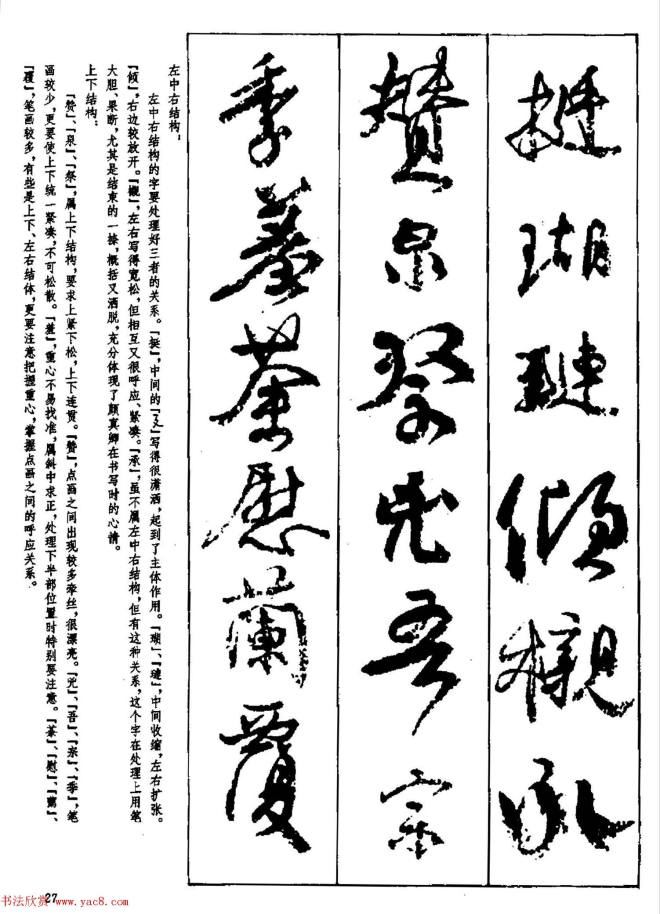 挺瑚璉傾櫬承
贊泉祭兇吾宗
季羞荼慰蘭覆
左中右结构：
左中右结构的字要处理好三者的关系。「挺」，中间的「廴」写得很潇洒，起到了主体作用。「瑚」、「琏」，中间收缩，左右扩张。
「倾」，右边较放开。「榇」，左右写得宽松，但相互又很呼应、紧凑。「承」，虽不属左中右结构，但有这种关系，这个字在处理上用笔
大胆、果断，尤其是结束的一捺，概括又洒脱，充分体现了颜真卿在书写时的心情。
上下结构：
「赞」、「泉」、「祭」，属上下结构，要求上紧下松，上下连贯。「赞」，点画之间出现较多牵丝，很漂亮。「兇」、「吾」、「宗」、「季」，笔
画较少，更要使上下统一紧凑，不可松散。「羞」，重心不易找准，属斜中求正，处理下半部位置时特别要注意。「荼」、「慰」、「蘭」、
「覆」，笔画较多，有些是上下、左右结体，更要注意把握重心，掌握点画之间的呼应关系。
27
书法欣赏 www.yac8.com